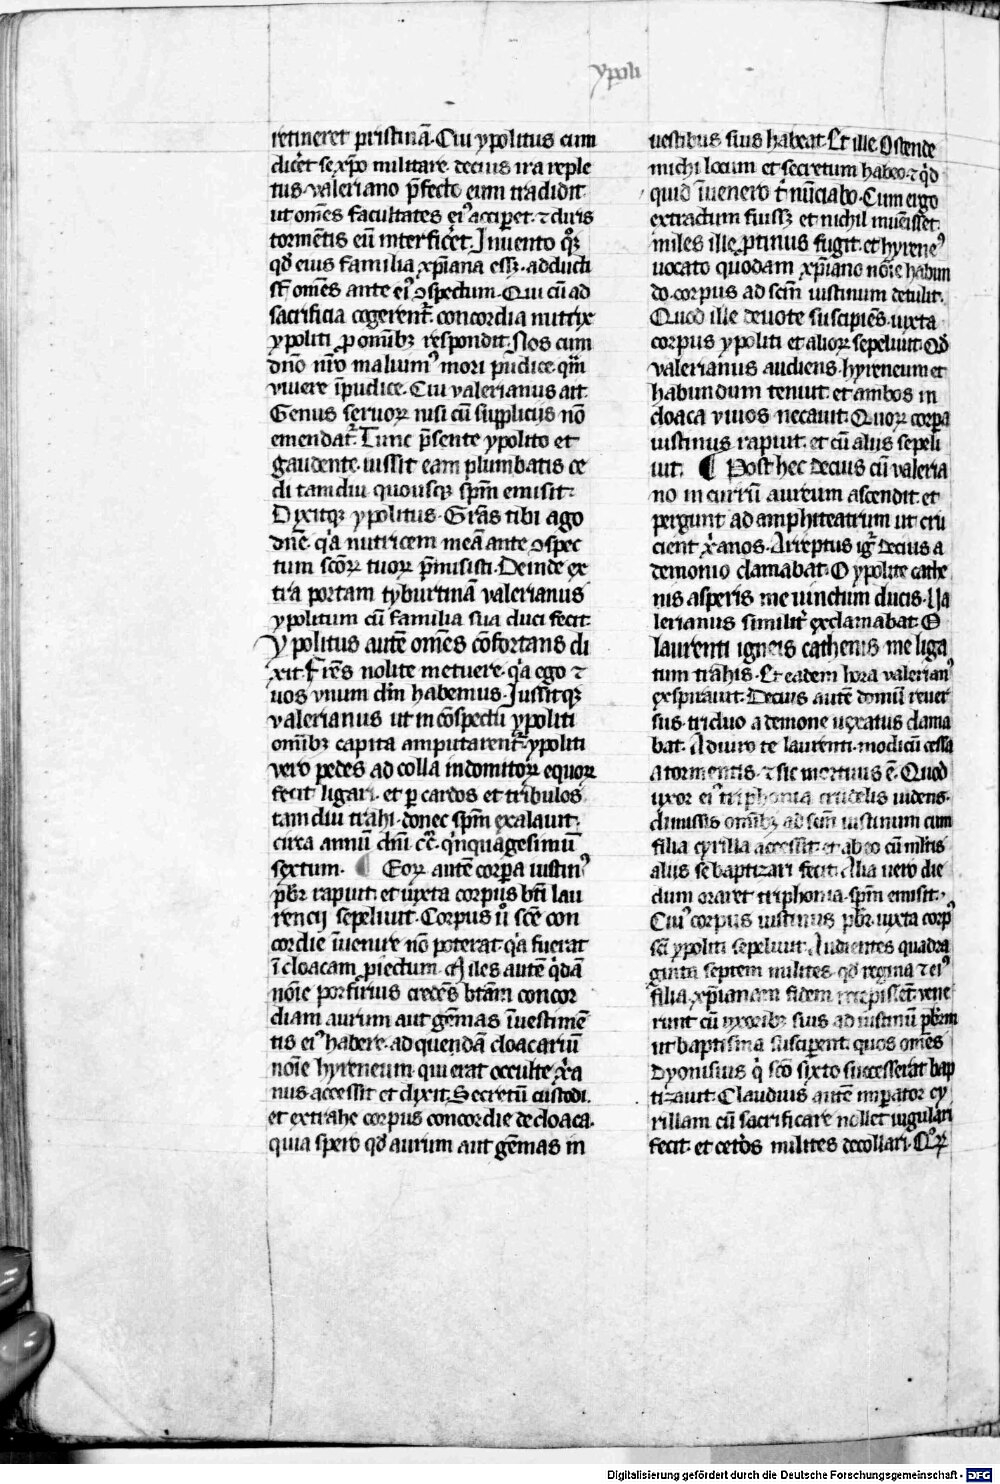 ypoliti
retineret pristinā. Cui ypolitus cum
dicēt se xp̄o militare. decius ira reple
tus. valeriano p̄fecto eum tradidit
ut om̄es facultates ei᾽ accip̲et. ⁊ diris
tormētis eū interficēt. Inuento g̊ꝫ
qd̄ eius familia xp̄iana essꝫ. adducti
st̄ om̄es ante ei᾽ ꝯspectum. Qui cū ad
sacrificia cogerent᷑ concordia nutrix
ypoliti ꝓ omībꝫ respondit. Nos cum
dn̄o nr̄o malium᾽ mori pudice. qͣm
viuere īpudice. Cui valerianus ait.
Genus seruoꝝ nisi cū supplicijs nō
emendat᷑. Tunc p̄sente ypolito et
gaudente. iussit eam plumbatis ce
di tamdiu quousqꝫ spm̄ emisit.
Dixitqꝫ ypolitus. Grās tibi ago
dn̄e. qͥa nutricem meā ante ꝯspec
tum scōꝝ tuoꝝ p̄misisti. Deinde ex
tra portam tyburtinā valerianus
ypolitum cū familia sua duci fecit.
Ypolitus autē om̄es cōfortans di
xit. Fr̄es nolite metuere. qͥa ego ⁊
uos vnum dn̄m habemus. Iussitqꝫ
valerianus ut in cōspectu ypoliti
omībꝫ capita amputarent᷑. ypoliti
vero pedes ad colla indomitoꝝ equoꝝ
fecit ligari. et p̲ cardos et tribulos
tam diu trahi. donec spm̄ exalauit.
circa annū dn̄i. cc̄. qͥnquagesimū
sextum. ¶ Eoꝝ autē corp̲a iustin᾽
p̄br̄ rapuit. et iuxta corpus bt̄i lau
rencij sepeliuit. Corpus ů scē con
cordie īuenire nō poterat. qͥa fuerat
ī cloacam ꝓiectum. Miles autē qͥdā
nōie porfirius credēs btā̄m concor
diam aurum aut gēmas ī uestimē
tis ei᾽ habere. ad quendā cloacariū
nōie hyreneum. qui erat occulte xͥa
nus accessit et dixit. Secretū custodi.
et extrahe corpus concordie de cloaca.
quia spero qd̄ aurum aut gēmas in
uestibus suis habeat. Et ille. Ostende
michi locum et secretum habeo. ⁊ qͥd
quid īuenero t͛ nūciabo. Cum ergo
extractum fuissꝫ et nichil inuēisset.
miles ille ꝓtinus fugit. et hyrene᾽
uocato quodam xp̄iano nōie habun
do. corpus ad scm̄ iustinum detulit.
Quod ille deuote suscipiēs. iuxta
corpus ypoliti et alioꝝ sepeliuit. Qd̄
valerianus audiens. hyreneum et
habundum tenuit. et ambos in
cloaca viuos necauit. Quoꝝ corp̲a
iustinus rapuit. et cū aliis sepeli
uit. ¶ Post hec decius cū valeria
no in currū aureum ascendit. et
pergunt ad amphiteatrum ut cru
cient xͥanos. Arreptus igͥ decius a
demonio clamabat. O ypolite cathe
nis asperis me uinctum ducis. Va
lerianus similit᷑ exclamabat. O
laurenti igneis cathenis me liga
tum trahis. Et eadem hora valerian᾽
exspirauit. Decius autē domū reuer
sus. triduo a demone uexatus clama
bat. Adiuro te laurenti. modicū cessa
a tormentis. ⁊ sic mortuus ē. Quod
uxor ei᾽ triphonia crudelis uidens.
dimissis omībꝫ ad scm̄ iustinum cum
filia cyrilla accessit. et ab eo cū ml̄tis
aliis se baptizari fecit. Alia uero die
dum oraret triphonia. spm̄ emisit.
Cui᾽ corpus iustinus p̄br̄ iuxta corp᾽
sc̄i ypoliti sepeliuit. Audientes quadra
ginta septem milites. qd̄ regina ⁊ ei᾽
filia xp̄ianam fidem recepissēt. vene
runt cū uxoribꝫ suis ad iustinū p̄br̄m
ut baptisma suscip̲ent. quos om̄es
Dyonisius qͥ scō sixto successerat bap
tizauit. Claudius autē imp̲ator cy
rillam cū sacrificare nollet iugulari
fecit. et cet̄os milites decollari. Qͦꝝ
Digitalisierung gefördert durch die Deutsche Forschungsgemeinschaft - DFG